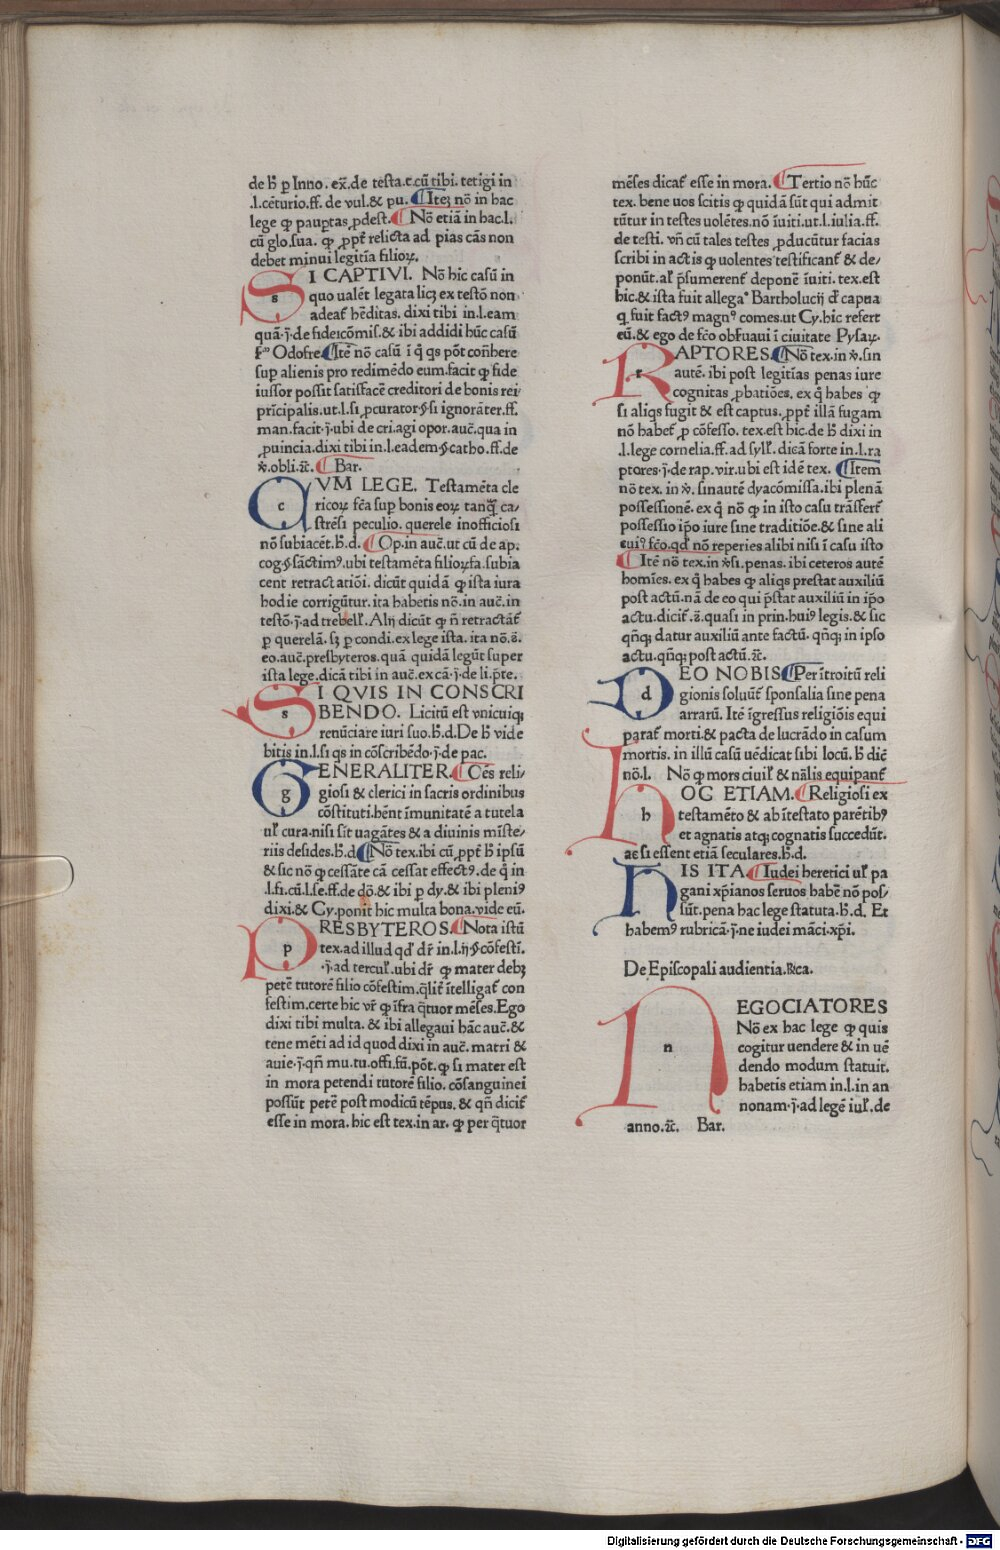 de hͦ ꝑ Inno. ex̄.de testa.c.cū tibi. tetigi in
.l.cēturio.ff. de vul.& pu. ¶ Iteꝫ nō in hac
lege ꝙ paup̄tas ꝓdest. ¶ Nō etiā in hac.l.
cū glo.sua. ꝙ ꝓpt̄ relicta ad pias cās non
debet minui legitīa filioꝝ.
SI CAPTIVI. Nō hic casū in
quo ualēt legata licꝫ ex testō non
adeat̄ hēditas. dixi tibi in.l.eam
quā.j.de fideicōmis̄.& ibi addidi hūc casū
Odofre. ¶ Itē nō casū ī q̄ q̄s pōt cōn̄here
sup̄ alienis pro redimēdo eum.facit ꝙ fide
iussor possit satisfacē creditori de bonis rei
prīcipalis.ut.l.si ꝓcurator.§.si ignorāter.ff.
man.facit.j.ubi de cri.agi opor.auc̄.qua in
ꝓuincia.dixi tibi in.l.eadem.§.catho.ff.de
℣.obli.⁊c̄. ¶ Bar.
CVM LEGE. Testamēta cle
ricoꝝ fc̄a sup̄ bonis eoꝝ tanq̄ꝫ ca-
strēsi peculio. querele inofficiosi
nō subiacēt.h̄.d. ¶ Op.in auc̄.ut cū de ap.
cog.§.sāctim⁹.ubi testamēta filioꝝ.fa.subia
cent retractatiōi. dicūt quidā ꝙ ista iura
hodie corrigūtur.ita habetis nō.in auc̄.in
testō.j.ad trebell̄. Alij dicūt ꝙ n̄ retractāt̄
ꝑ querelā. sꝫ ꝑ condi.ex lege ista. ita nō.ā.
eo.auc̄.presbyteros.quā quidā legūt super
ista lege.dicā tibi in auc̄.ex cā.j.de li.p̄te.
SI QVIS IN CONSCRI
BENDO. Licitū est vnicuiqꝫ
renūciare iuri suo.h̄.d.De h̄ vide
bitis in.l.si q̄s in cōscribēdo.j.de pac.
GENERALITER. ¶ Oēs reli-
giosi & clerici in sacris ordinibus
cōstituti.hēnt īmunitatē a tutela
ul̄ cura.nisi sīt uagātes & a diuinis mīste-
riis desides.h̄.d. ¶ Nō tex.ibi cū.ꝓpt̄ h̄ ipsū
& sic nō ꝙ cessāte cā cessat effect⁹.de q̄ in
.l.fi.cū.l.se.ff.de dō.& ibi ꝑ dy.& ibi pleni⁹
dixi.& Cy.ponit hic multa bona.vide eū.
PRESBYTEROS. ¶ Nota istū
tex.ad illud qd̄ dr̄ in.l.ij.§.cōfestī.
.j.ad tercul̄.ubi dr̄ ꝙ mater debꝫ
petē tutorē filio cōfestim.q̄lit̄ ītelligat̄ con
festim.certe hic vr̄ ꝙ īfra q̄tuor mēses.Ego
dixi tibi multa. & ibi allegaui hāc auc̄.&
tene mēti ad id quod dixi in auc̄. matri &
auie.j.qn̄ mu.tu.offi.fū.pōt.ꝙ si mater est
in mora petendi tutorē filio. cōsanguinei
possūt petē post modicū tēpus. & qn̄ dicit̄
esse in mora. hic est tex.in ar. ꝙ per q̄tuor
mēses dicat̄ esse in mora. ¶ Tertio nō hūc
tex. bene uos scitis ꝙ quidā sūt qui admit
tūtur in testes uolētes.nō īuiti.ut.l.iulia.ff.
de testi. vn̄ cū tales testes ꝓducūtur facias
scribi in actis ꝙ uolentes testificant̄ & de-
ponūt.al̄ p̄sumerent̄ deponē īuiti. tex.est
hic.& ista fuit allega⁰ Bartholucij d̄ capua
q̄ fuit fact⁹ magn⁹ comes.ut Cy.hic refert
eū.& ego de fc̄o obs̄ruaui ī ciuitate Pysaꝝ.
RAPTORES. ¶ Nō tex.in ℣.sin
autē. ibi post legitīas penas iure
cognitas ꝓbatiōes. ex q̄ habes ꝙ
si aliq̄s fugit & est captus. ꝓpt̄ illā fugam
nō habet̄ ꝑ cōfesso. tex.est hic.de h̄ dixi in
.l.lege cornelia.ff.ad syll̄. dicā forte in.l.ra
ptores.j.de rap.vir.ubi est idē tex. ¶ Item
nō tex. in ℣. sinautē dyacōmissa.ibi plenā
possessionē. ex q̄ nō ꝙ in isto casu trāsfert̄
possessio ip̄o iure sine traditiōe.& sine ali
cui⁹ fc̄o.qd̄ nō reperies alibi nisi ī casu isto
¶ Itē nō tex.in ℣.si.penas. ibi ceteros autē
homīes. ex q̄ habes ꝙ aliq̄s prestat auxiliū
post actū.nā de eo qui p̄stat auxiliū in ip̄o
actu.dicit̄.ā.quasi in prin.hui⁹ legis.& sic
qn̄qꝫ datur auxiliū ante factū. qn̄qꝫ in ipso
actu.qn̄qꝫ post actū.⁊c̄.
DEO NOBIS. ¶ Per ītroitū reli
gionis soluūt̄ sponsalia sine pena
arrarū. Itē īgressus religiōis equi
parat̄ morti.& pacta de lucrādo in casum
mortis. in illū casū uēdicat sibi locū. h̄ diē
nō.l. Nō ꝙ mors ciuil̄ & nālis equipant̄
HOC ETIAM. ¶ Religiosi ex
testamēto & ab ītestato parētib⁹
et agnatis atqꝫ cognatis succedūt.
ac si essent etiā seculares.h̄.d.
HIS ITA. ¶ Iudei heretici ul̄ pa
gani xp̄ianos seruos habē nō pos-
sūt.pena hac lege statuta.h̄.d. Et
habem⁹ rubricā.j.ne iudei māci.xp̄i.
De Episcopali audientia.Ricꝫa.
NEGOCIATORES
Nō ex hac lege ꝙ quis
cogitur uendere & in uē
dendo modum statuit.
habetis etiam in.l.in an
nonam.j.ad legē iul̄.de
anno.⁊c̄. Bar.
Digitalisierung gefördert durch die Deutsche Forschungsgemeinschaft - DFG